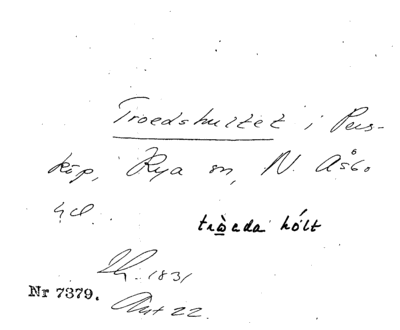 Troedshultet i Pers-
köp, Rya sn, N. Åsbo
hd.
trœda hólt
1831
Nr 7379. Akt 22.